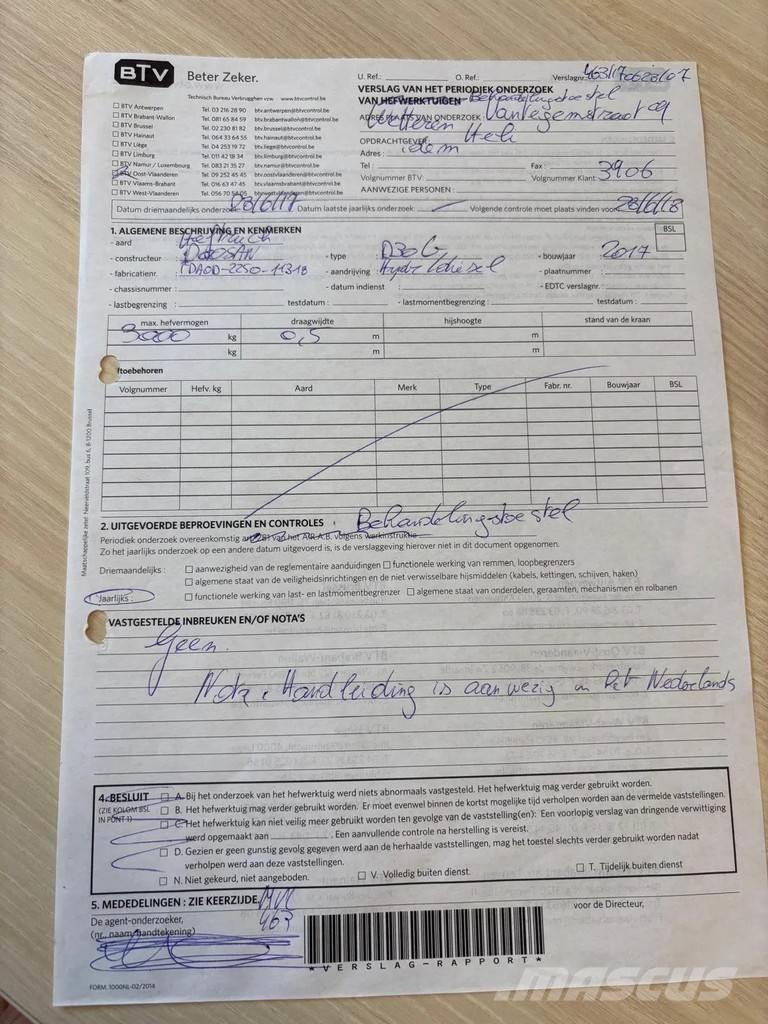 BTV Beter Zeker.
Technisch Bureau Verbrugghen vzw www.btvcontrol.be
BTV Antwerpen Tel. 03 216 28 90 btv.antwerpen@btvcontrol.be
BTV Brabant-Wallon Tel. 081 65 84 59 btv.brabantwallon@btvcontrol.be
BTV Brussel Tel. 02 230 81 82 btv.brussel@btvcontrol.be
BTV Hainaut Tel. 064 33 64 55 btv.hainaut@btvcontrol.be
BTV Liège Tel. 04 253 19 72 btv.liege@btvcontrol.be
BTV Limburg Tel. 011 42 18 34 btv.limburg@btvcontrol.be
BTV Namur / Luxembourg Tel. 083 21 35 27 btv.namur@btvcontrol.be
BTV Oost-Vlaanderen Tel. 09 252 45 45 btv.oostvlaanderen@btvcontrol.be
BTV Vlaams-Brabant Tel. 016 63 47 45 btv.vlaamsbrabant@btvcontrol.be
BTV West-Vlaanderen Tel. 056 70 54 05 btv.westvlaanderen@btvcontrol.be
U. Ref.: O. Ref.: Verslagnr. 463/170628/07
VERSLAG VAN HET PERIODIEK ONDERZOEK
VAN HEFWERKTUIGEN Behandelingstoestel
ADRES PLAATS VAN ONDERZOEK : Vantegemstraat 09
OPDRACHTGEVER: Wetteren
Adres : idem
Tel : Fax :
Volgnummer BTV: Volgnummer Klant: 3906
AANWEZIGE PERSONEN :
Datum driemaandelijks onderzoek: 28/6/17 Datum laatste jaarlijks onderzoek: Volgende controle moet plaats vinden voor 28/6/18
1. ALGEMENE BESCHRIJVING EN KENMERKEN BSL
- aard : Heftruck
- constructeur : DOOSAN - type : D30G - bouwjaar : 2017
- fabricatienr. : FDA0D-2250-11318 - aandrijving : Hydr/diesel - plaatnummer :
- chassisnummer : - datum indienst : - EDTC verslagnr. :
- lastbegrenzing : testdatum : - lastmomentbegrenzing : testdatum :
max. hefvermogen draagwijdte hijshoogte stand van de kraan
3000 kg 0,5 m m
kg m m
ftoebehoren
Volgnummer Hefv. kg Aard Merk Type Fabr. nr. Bouwjaar BSL
2. UITGEVOERDE BEPROEVINGEN EN CONTROLES : Behandelingstoestel
Periodiek onderzoek overeenkomstig art. 281 van het A.R.A.B. volgens werkinstructie
Zo het jaarlijks onderzoek op een andere datum uitgevoerd is, is de verslaggeving hierover niet in dit document opgenomen.
Driemaandelijks : aanwezigheid van de reglementaire aanduidingen functionele werking van remmen, loopbegrenzers
algemene staat van de veiligheidsinrichtingen en de niet verwisselbare hijsmiddelen (kabels, kettingen, schijven, haken)
Jaarlijks : functionele werking van last- en lastmomentbegrenzer algemene staat van onderdelen, geraamten, mechanismen en rolbanen
VASTGESTELDE INBREUKEN EN/OF NOTA'S
Geen.
Nota : Handleiding is aanwezig in het Nederlands
4. BESLUIT A. Bij het onderzoek van het hefwerktuig werd niets abnormaals vastgesteld. Het hefwerktuig mag verder gebruikt worden.
(ZIE KOLOM BSL B. Het hefwerktuig mag verder gebruikt worden. Er moet evenwel binnen de kortst mogelijke tijd verholpen worden aan de vermelde vaststellingen.
IN PUNT 1) C. Het hefwerktuig kan niet veilig meer gebruikt worden ten gevolge van de vaststelling(en): Een voorlopig verslag van dringende verwittiging
werd opgemaakt aan . Een aanvullende controle na herstelling is vereist.
D. Gezien er geen gunstig gevolg gegeven werd aan de herhaalde vaststellingen, mag het toestel slechts verder gebruikt worden nadat
verholpen werd aan deze vaststellingen.
N. Niet gekeurd, niet aangeboden. V. Volledig buiten dienst. T. Tijdelijk buiten dienst
5. MEDEDELINGEN : ZIE KEERZIJDE.
De agent-onderzoeker, 463 voor de Directeur,
(nr., naam, handtekening)
*VERSLAG-RAPPORT*
FORM. 1000NL-02/2014
Maatschappelijke zetel: Neerveldstraat 109, bus 6, B-1200 Brussel
MASCUS